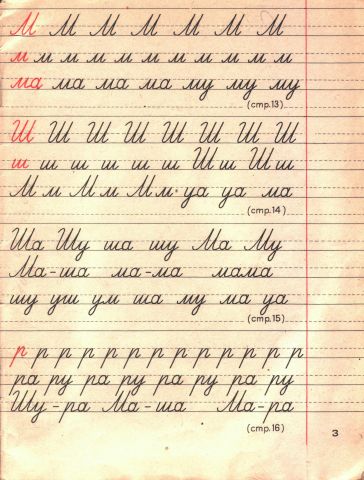 М М М М М М М
м м м м м м м м м м м
ма ма ма ма му му му
(стр.13)
Ш Ш Ш Ш Ш Ш Ш Ш
ш ш ш ш ш ш Ш ш Ш ш
М м М м М м уа уа ма
(стр.14)
Ша Шу ша шу Ма Му
Ма-ша ма-ма мама
шу уш ум ша му ма уа
(стр.15)
р р р р р р р р р р р р р
ра ру ра ру ра ру ра ру
Шу-ра Ма-ша Ма-ра
(стр.16)
3